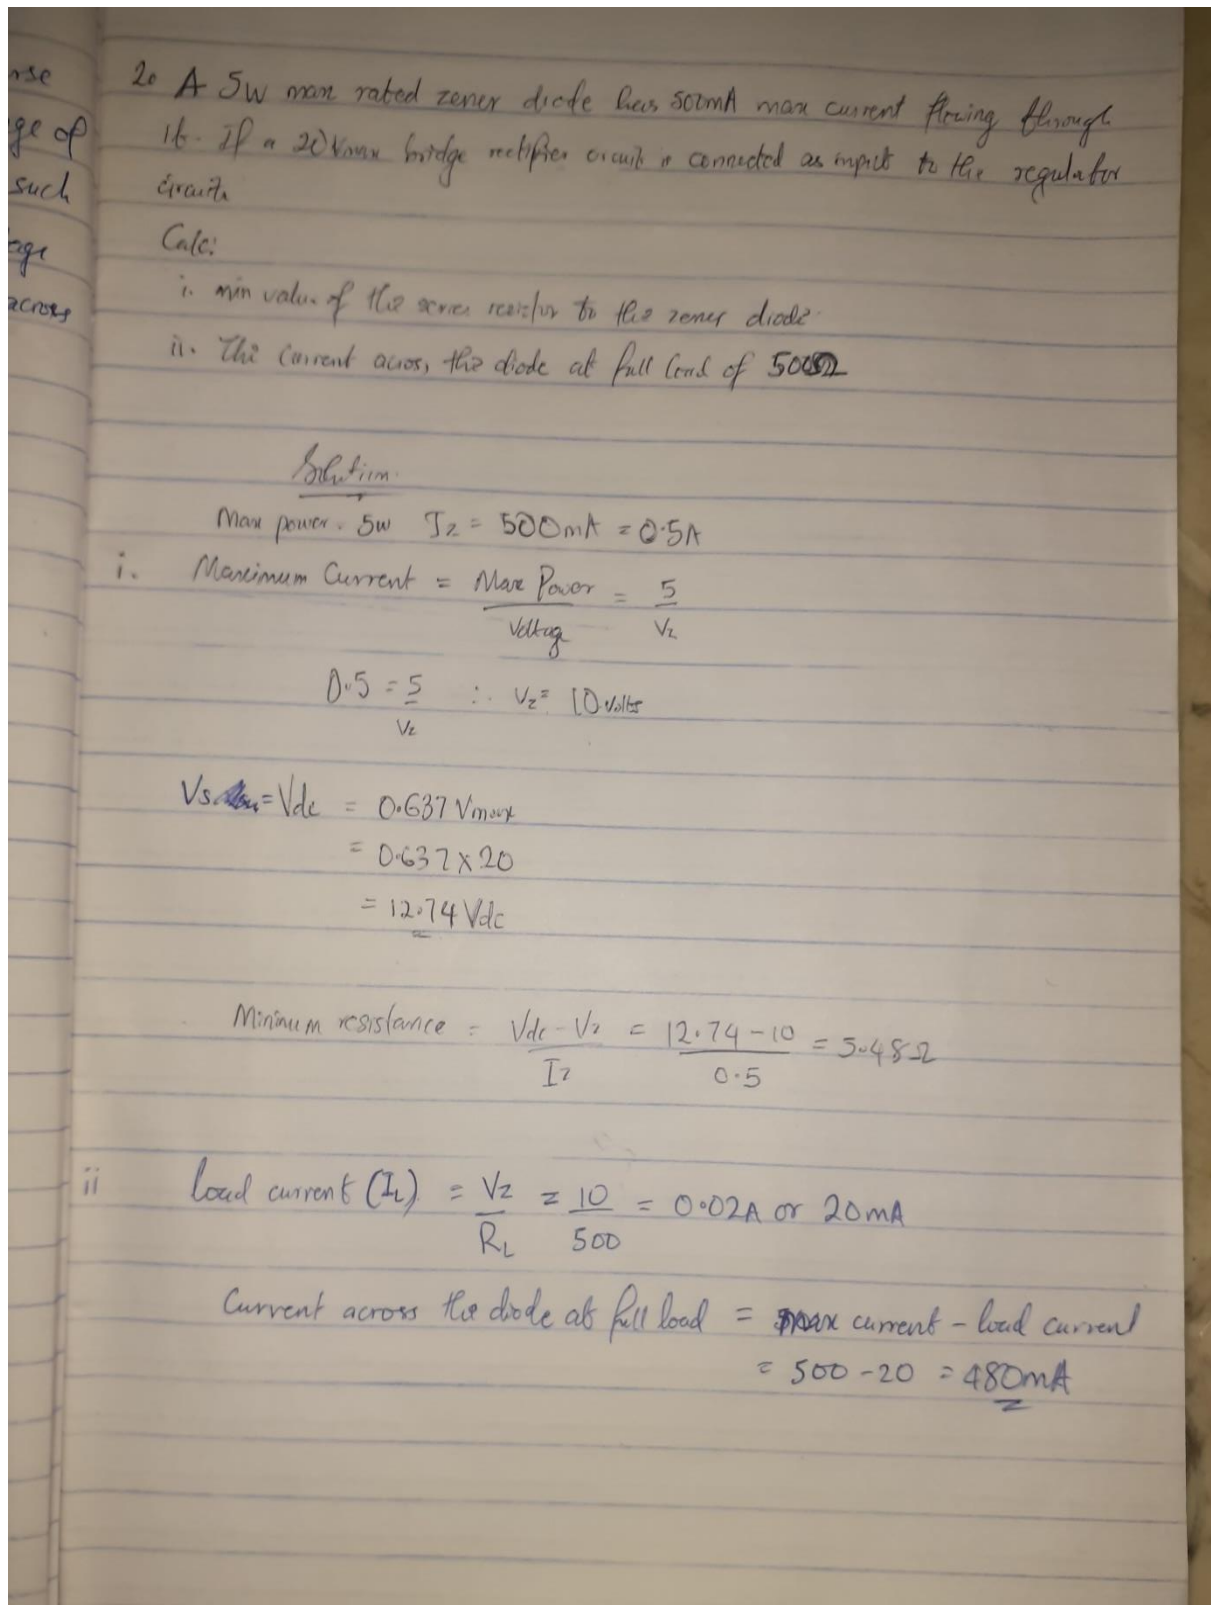 rse
ge of
such
age
across
2. A 5W max rated zener diode has 500mA max current flowing through
it. If a 20Vmax bridge rectifier circuit is connected as input to the regulator
circuit.
Calc:
i. min value of the series resistor to the zener diode.
ii. The current across, the diode at full load of 500Ω
Solution.
Max power. 5w Iz = 500mA = 0.5A
i. Maximum Current = Max Power = 5
Voltage Vz
0.5 = 5 ∴ Vz = 10 volts
Vz
Vs = Vdc = 0.637 Vmax
= 0.637 x 20
= 12.74 Vdc
Minimum resistance = Vdc - Vz = 12.74 - 10 = 5.48Ω
Iz 0.5
ii Load current (IL) = Vz = 10 = 0.02A or 20mA
RL 500
Current across the diode at full load = max current - load current
= 500 - 20 = 480mA